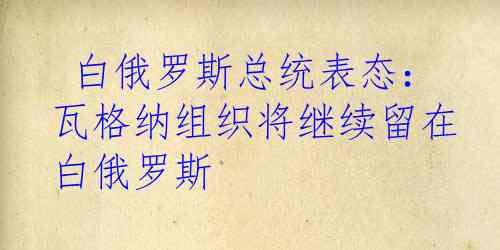 白俄罗斯总统表态：
瓦格纳组织将继续留在
白俄罗斯